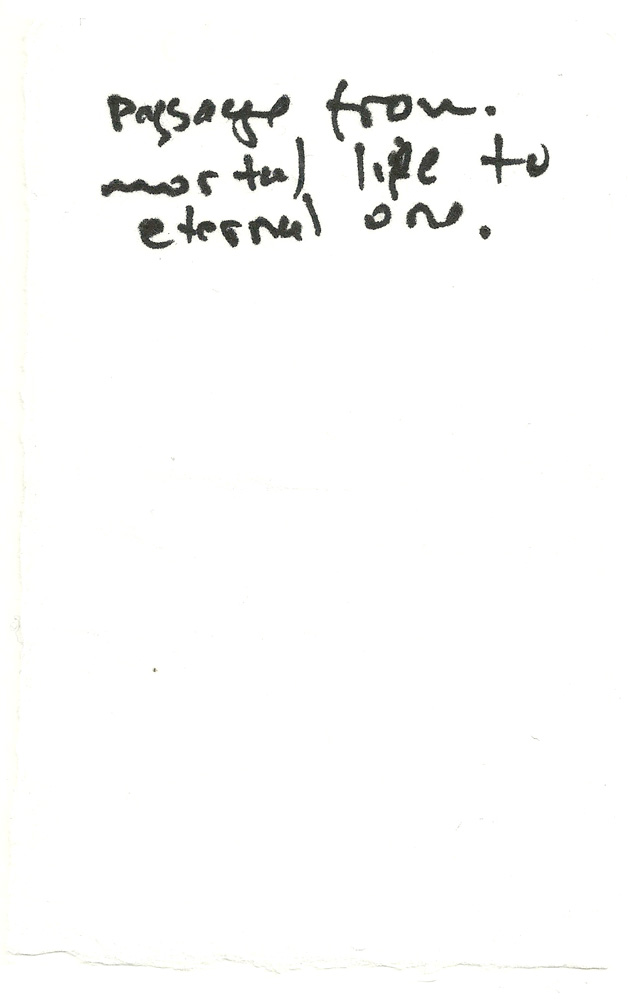 passage from.
mortal life to
eternal one.